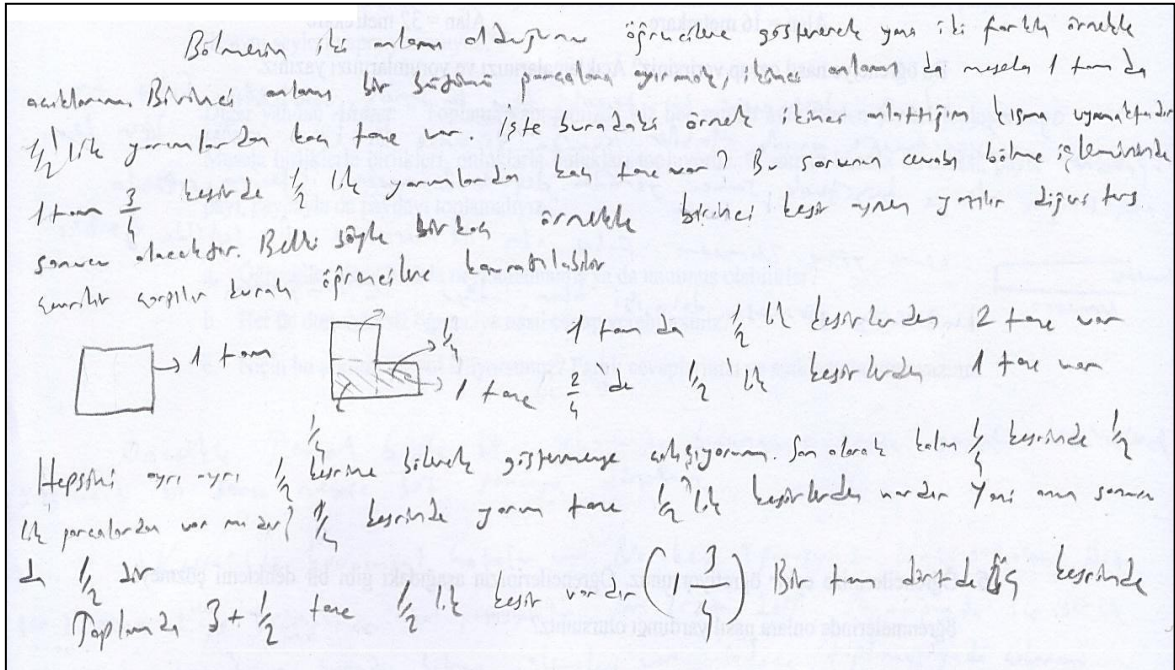 Bölmenin iki anlamı olduğunu öğrencilere göstererek yani iki farklı örnekle
açıklarım. Birincinci anlamı bir bütünün parçalara ayırmak, ikinci anlamı da mesela 1 tam da
1/2 lik yarımlardan kaç tane var. İşte buradaki örnek ikinci anlattığım kısma uymaktadır
1 tam 3/4 kesirde 1/2 lik yarımlardan kaç tane var? Bu sorunun cevabı bölme işleminin de
sonucu olacaktır. Belki şöyle bir kaç örnekle birinci kesir aynen yazılır diğeri ters
çevrilir çarpılır kuralı öğrencilere kavratılabilir
1 tam 1/2 1 tam da 1/2 lik kesirlerden 2 tane var
1/2 1 tane 2/4 de 1/2 lik kesirlerden 1 tane var
Hepsini ayrı ayrı 1/2 kesrine bölerek göstermeye çalışıyorum. Son olarak kalan 1/4 kesrinde 1/2
lik parçalardan var mıdır? 1/4 kesrinde yarım tane 1/2 lik kesirlerden vardır Yani onun sonucu
da 1/2 dir
Toplamda 3 + 1/2 tane 1/2 lik kesir vardır (1 3/4) Bir tam dörtde üç kesrinde